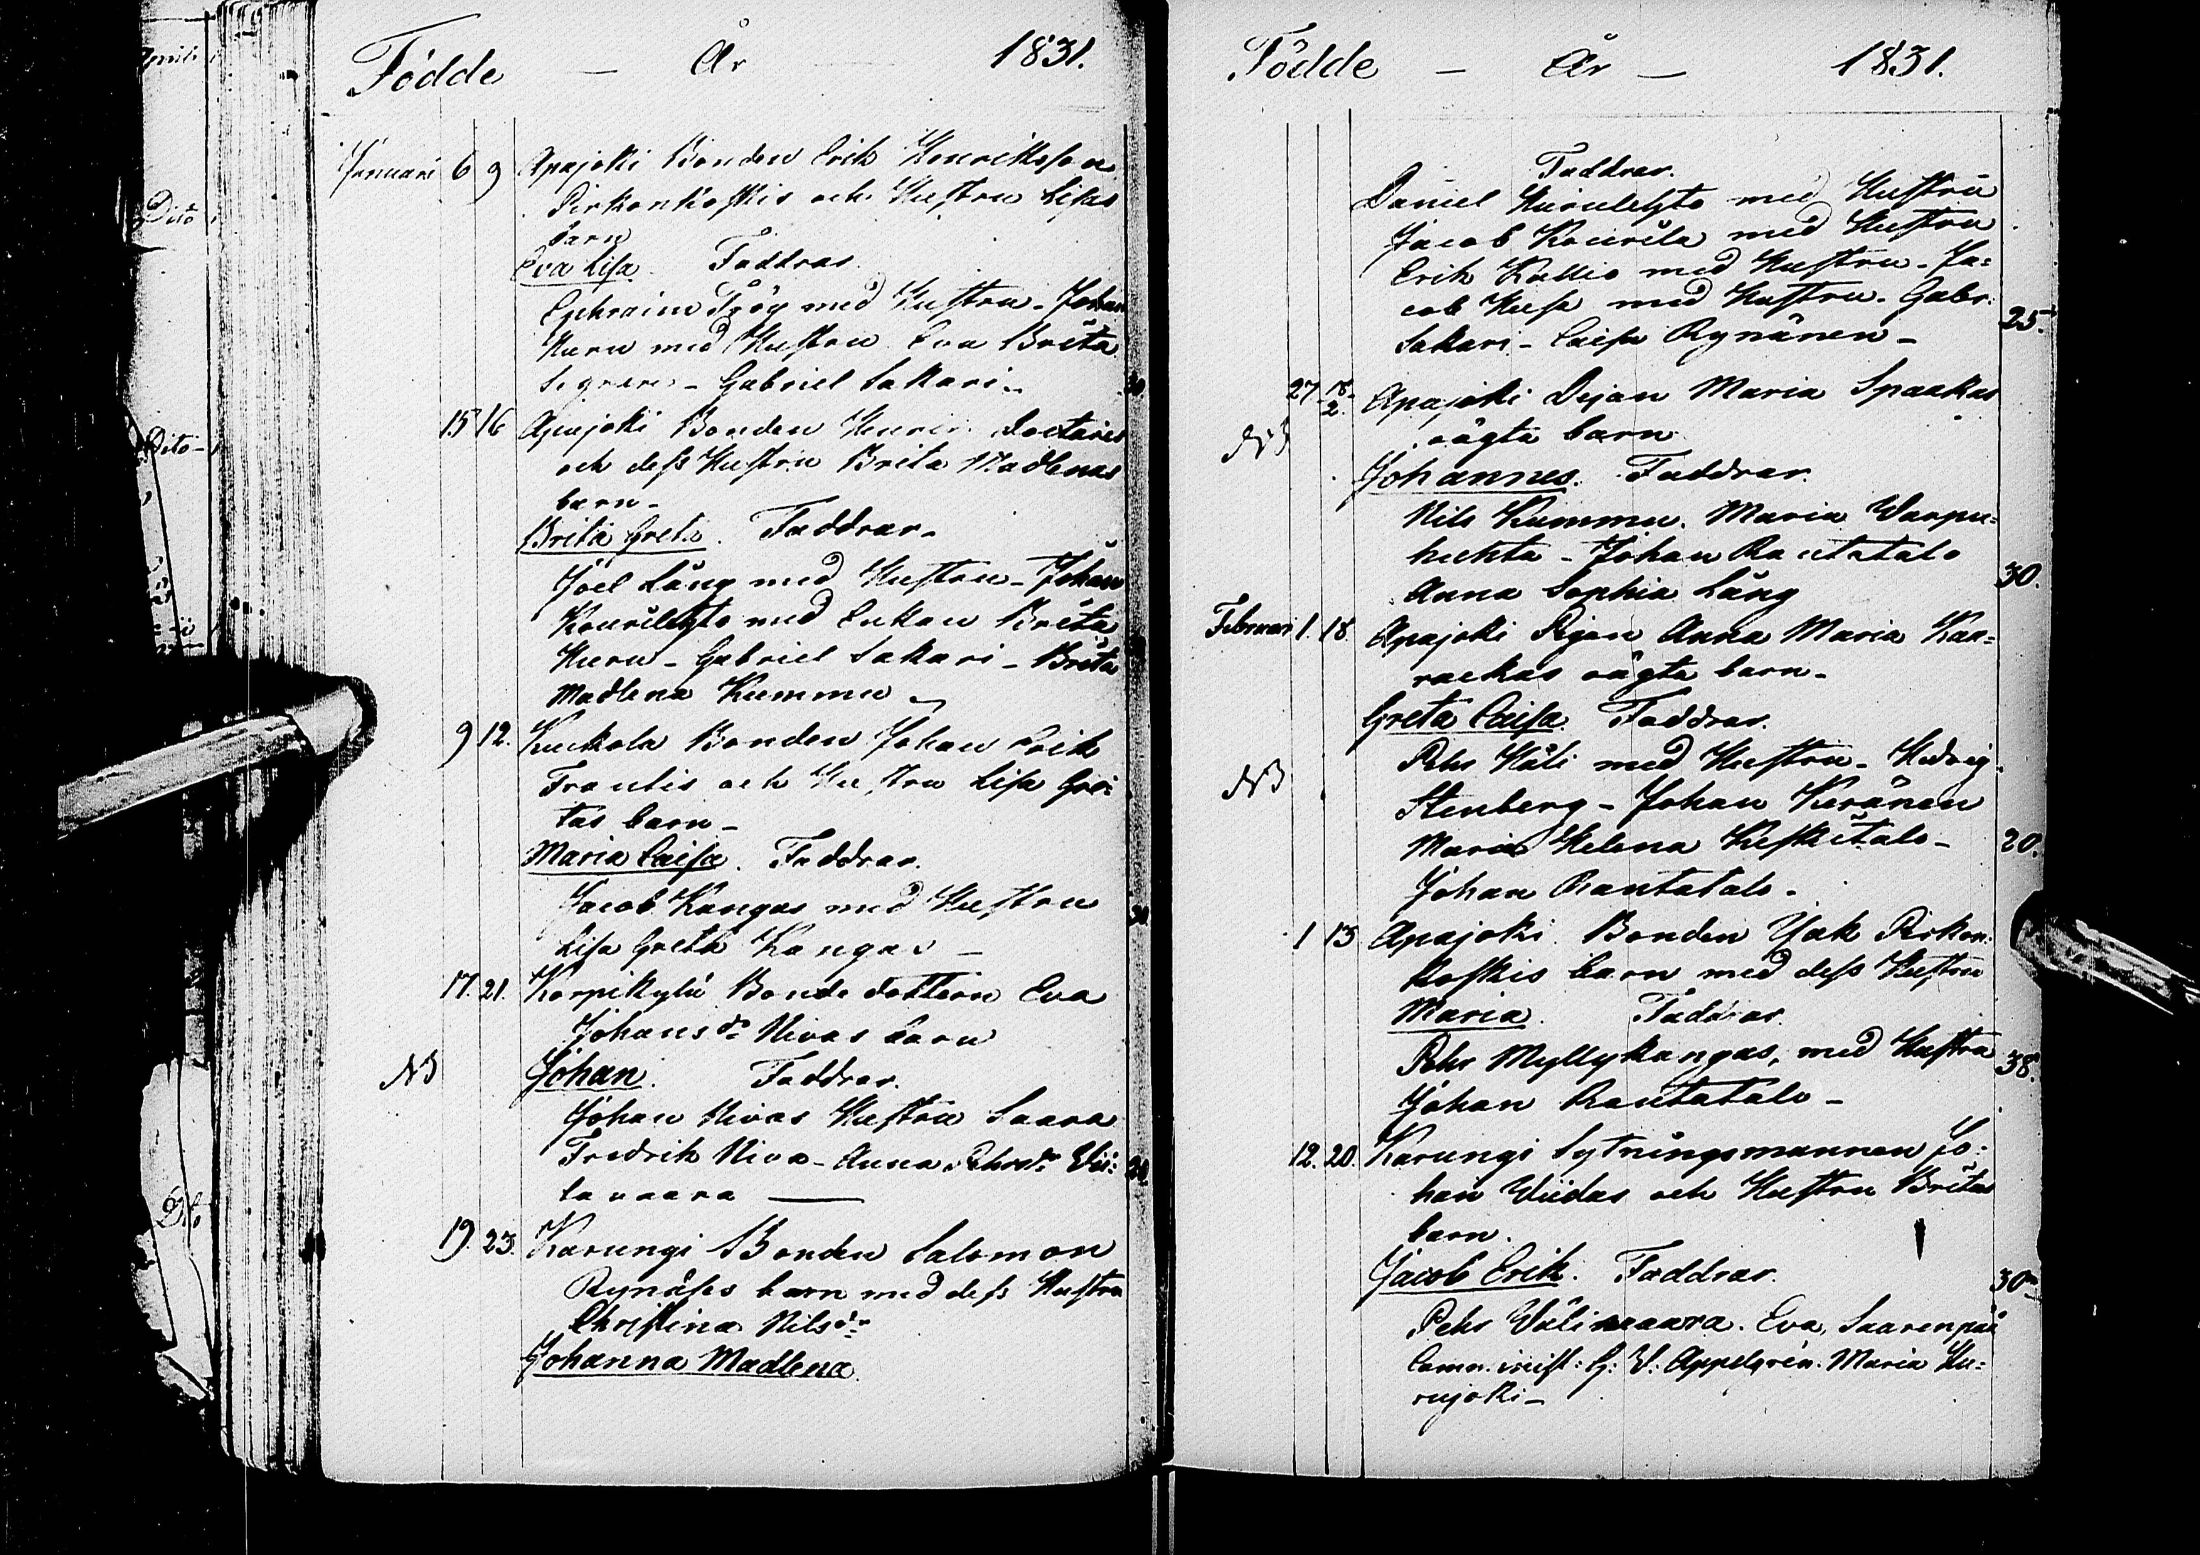 Födde — År — 1831.
Januari 6 9 Apajoki Bonden Erik Henriksson
Pirkonkoskis och Hustru Lisas
barn
Eva Lisa. Faddrar.
Ephraim Frög med Hustru - Johan
Kuru med Hustru Eva Brita
- Gabriel Lakari - 30
15 16 Apajoki Bonden
och dess Hustru Brita Madlenas
barn -
Brita Greta. Faddrar -
Joel Lång med Hustru - Johan
med Enkan Brita
Kuru - Gabriel Lakari - Brita
Madlena Kummu -
9 12. Kuckola Bonden Johan Erik
Frantis och Hustru Lisa Gre:
tas barn -
Maria Caisa. Faddrar.
Jacob Kangas med Hustru
Lisa Greta Kangas -
17. 21. Korpikylä Bonde dottern Eva
Johans dr Nivas barn
NB Johan. Faddrar.
Johan Nivas Hustru Saara
Fredrik Niva - Anna Pehrsdr Vii:
tavaara —
19. 23. Karungi Bonden Salomon
Rynäses barn med dess Hustru
Christina Nilsdr
Johanna Madlena.
Födde — År — 1831.
Faddrar.
Daniel med Hustru
Jacob Kourila med Hustru
Erik Kallio med Hustru - Ja:
cob med Hustru. Gabr.
Lakari - Caisa Rynänen - 25.
27 18/2. Apajoki Pigan Maria Spaakas
NB oägta barn
Johannes. Faddrar.
Nils Kummu. Maria Warpu:
huhta - Johan Rautatalo
Anna Sophia Lång 30.
Februari 1. 18 Apajoki Pigan Anna Maria Kaa:
rackas oägta barn -
Greta Caisa. Faddrar.
NB Pehr Häli med Hustru - Hedvig
Stenberg - Johan Keränen
Maria Helena Keskitalo - 20.
Johan Rautatalo -
1 13 Apajoki Bonden Isak Pirkon:
koskis barn med dess Hustru
Maria. Faddrar.
Pehr Myllykangas, med Hustru 38.
Johan Rautatalo -
12. 20. Karungi Sytningsmannen Jo:
han Viidas och Hustru Britas
barn.
Jacob Erik. Faddrar. 30
Pehr Välimaara. Eva Saarenpää
Comn. inist: G: W: Appelgrén. Maria Ku:
rujoki -